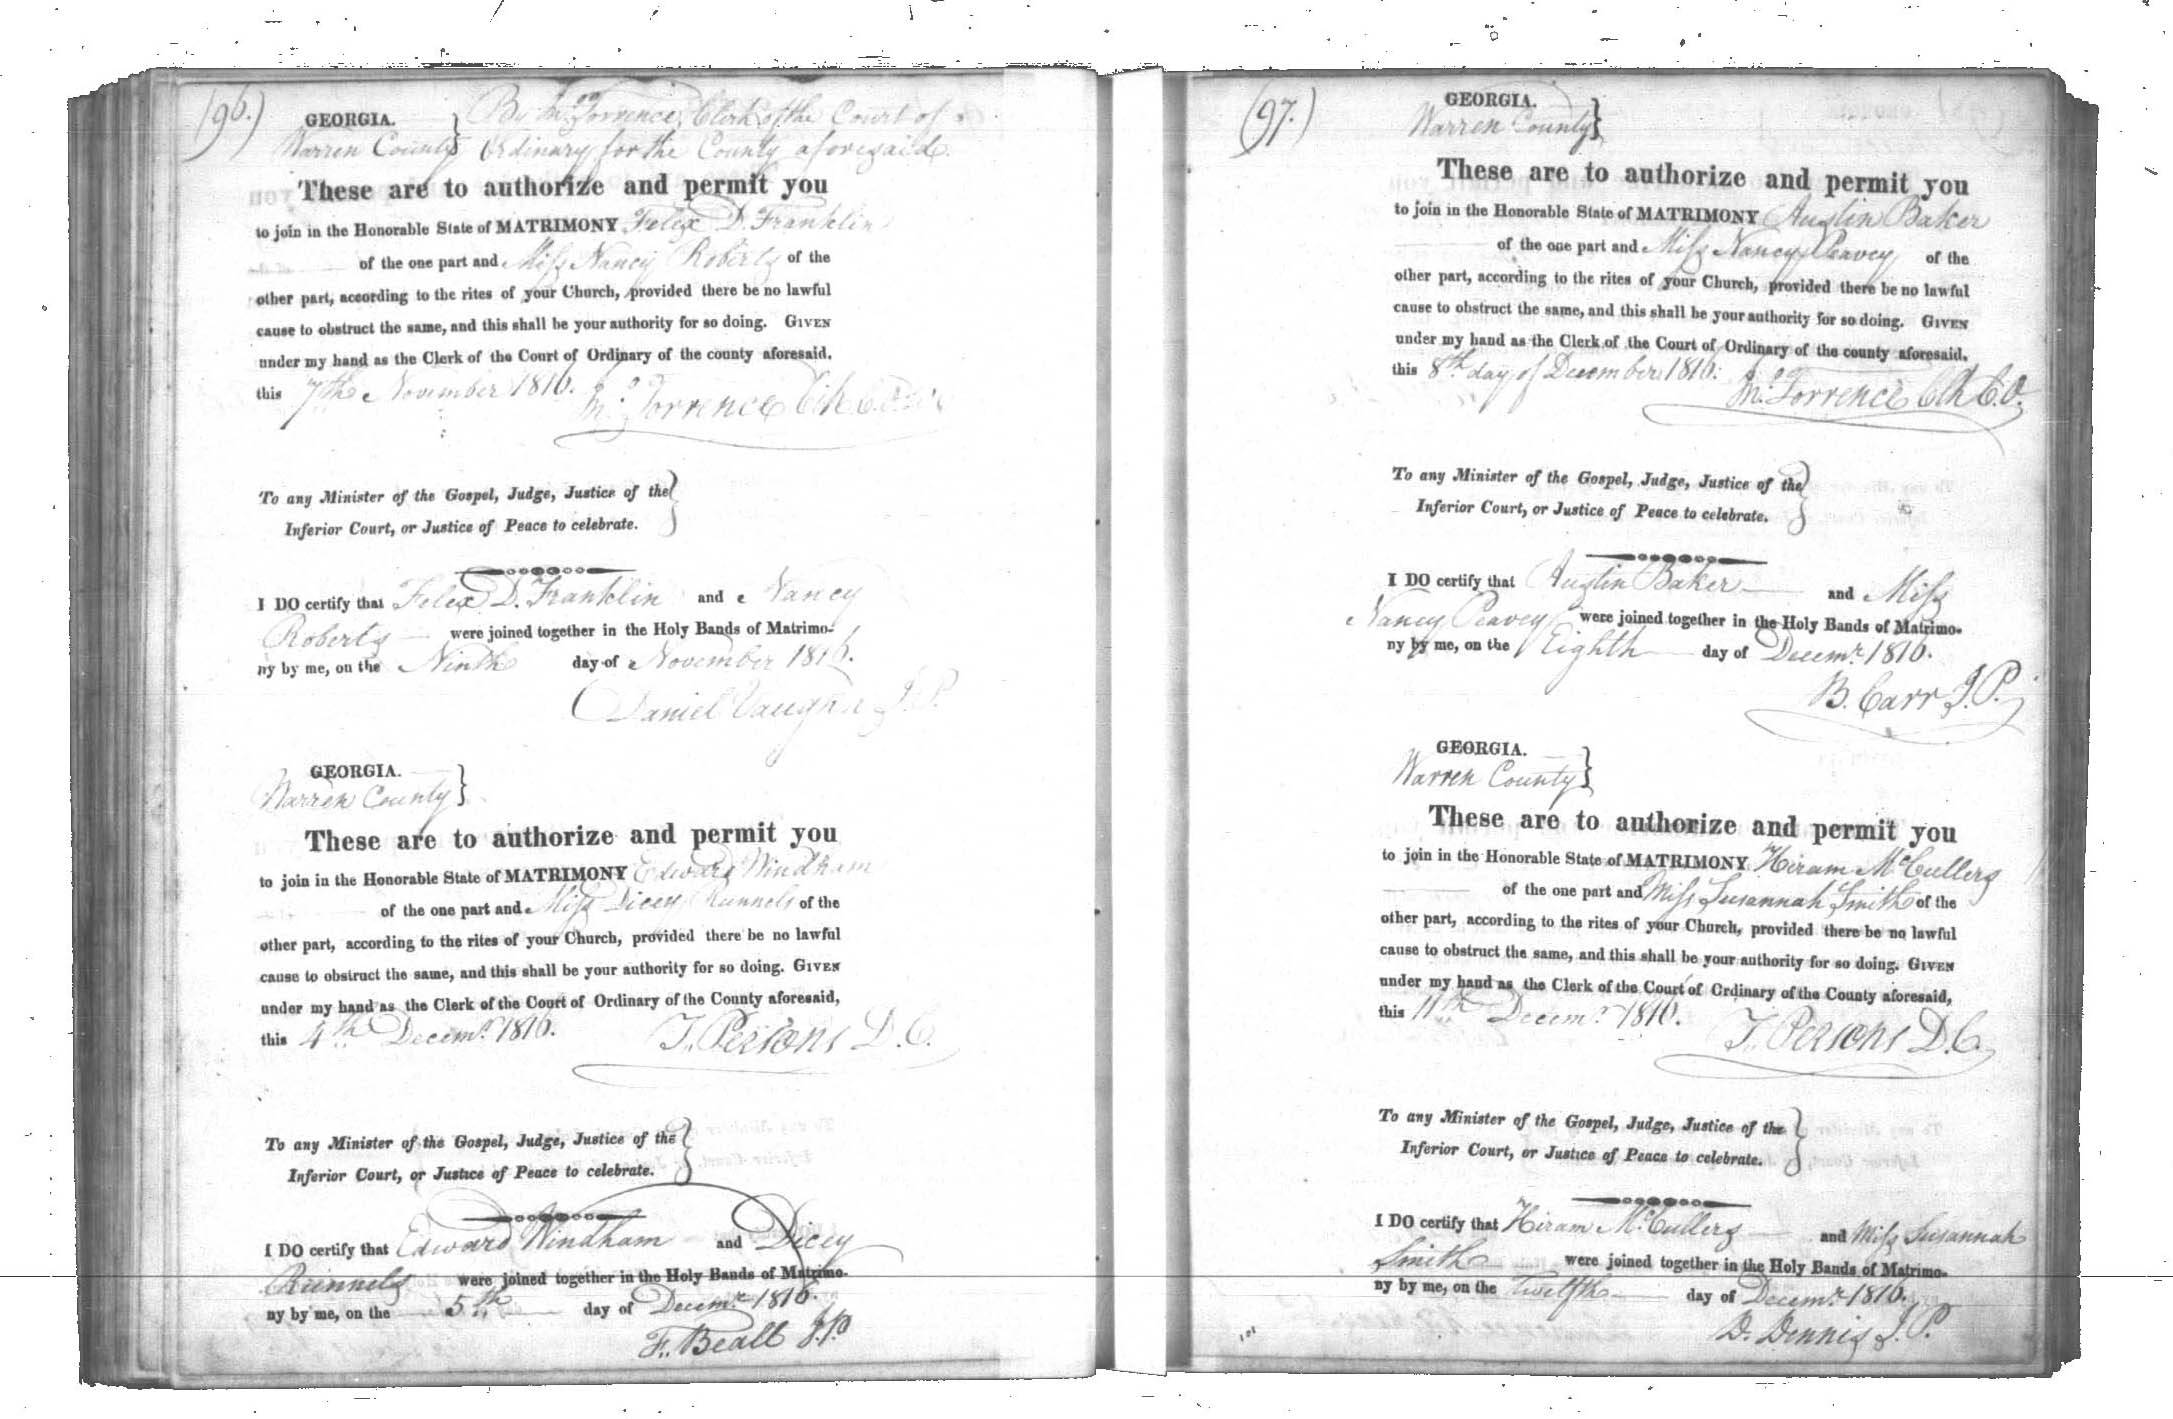 (96.)
GEORGIA. } By Mc. Torrence, Clerk of the Court of
Warren County } Ordinary for the County aforesaid.
These are to authorize and permit you
to join in the Honorable State of MATRIMONY Felix D. Franklin
of the one part and Miss Nancy Roberts of the
other part, according to the rites of your Church, provided there be no lawful
cause to obstruct the same, and this shall be your authority for so doing. GIVEN
under my hand as the Clerk of the Court of Ordinary of the county aforesaid,
this 7th November 1816. Torrence Clk C.O.
To any Minister of the Gospel, Judge, Justice of the }
Inferior Court, or Justice of Peace to celebrate. }
I DO certify that Felix D. Franklin and Nancy
Roberts were joined together in the Holy Bands of Matrimo-
ny by me, on the Ninth day of November 1816.
Daniel Vaughn J.P.
GEORGIA. }
Warren County }
These are to authorize and permit you
to join in the Honorable State of MATRIMONY Edward Windham
of the one part and Miss Dicey Runnels of the
other part, according to the rites of your Church, provided there be no lawful
cause to obstruct the same, and this shall be your authority for so doing. GIVEN
under my hand as the Clerk of the Court of Ordinary of the County aforesaid,
this 4th Decemr. 1816. T. Persons D.C.
To any Minister of the Gospel, Judge, Justice of the }
Inferior Court, or Justice of Peace to celebrate. }
I DO certify that Edward Windham and Dicey
Runnels were joined together in the Holy Bands of Matrimo-
ny by me, on the 5th day of Decemr. 1816.
F. Beall J.P.
(97.)
GEORGIA. }
Warren County }
These are to authorize and permit you
to join in the Honorable State of MATRIMONY Austin Baker
of the one part and Miss Nancy Peavey of the
other part, according to the rites of your Church, provided there be no lawful
cause to obstruct the same, and this shall be your authority for so doing. GIVEN
under my hand as the Clerk of the Court of Ordinary of the county aforesaid,
this 8th day of December 1816. Torrence Clk C.O.
To any Minister of the Gospel, Judge, Justice of the }
Inferior Court, or Justice of Peace to celebrate. }
I DO certify that Austin Baker and Miss
Nancy Peavey were joined together in the Holy Bands of Matrimo-
ny by me, on the Eighth day of Decemr. 1816.
B. Carr J.P.
GEORGIA. }
Warren County }
These are to authorize and permit you
to join in the Honorable State of MATRIMONY Hiram McCullers
of the one part and Miss Susannah Smith of the
other part, according to the rites of your Church, provided there be no lawful
cause to obstruct the same, and this shall be your authority for so doing. GIVEN
under my hand as the Clerk of the Court of Ordinary of the County aforesaid,
this 11th Decemr. 1816. T. Persons D.C.
To any Minister of the Gospel, Judge, Justice of the }
Inferior Court, or Justice of Peace to celebrate. }
I DO certify that Hiram McCullers and Miss Susannah
Smith were joined together in the Holy Bands of Matrimo-
ny by me, on the Twelfth day of Decemr. 1816.
D. Dennis J.P.